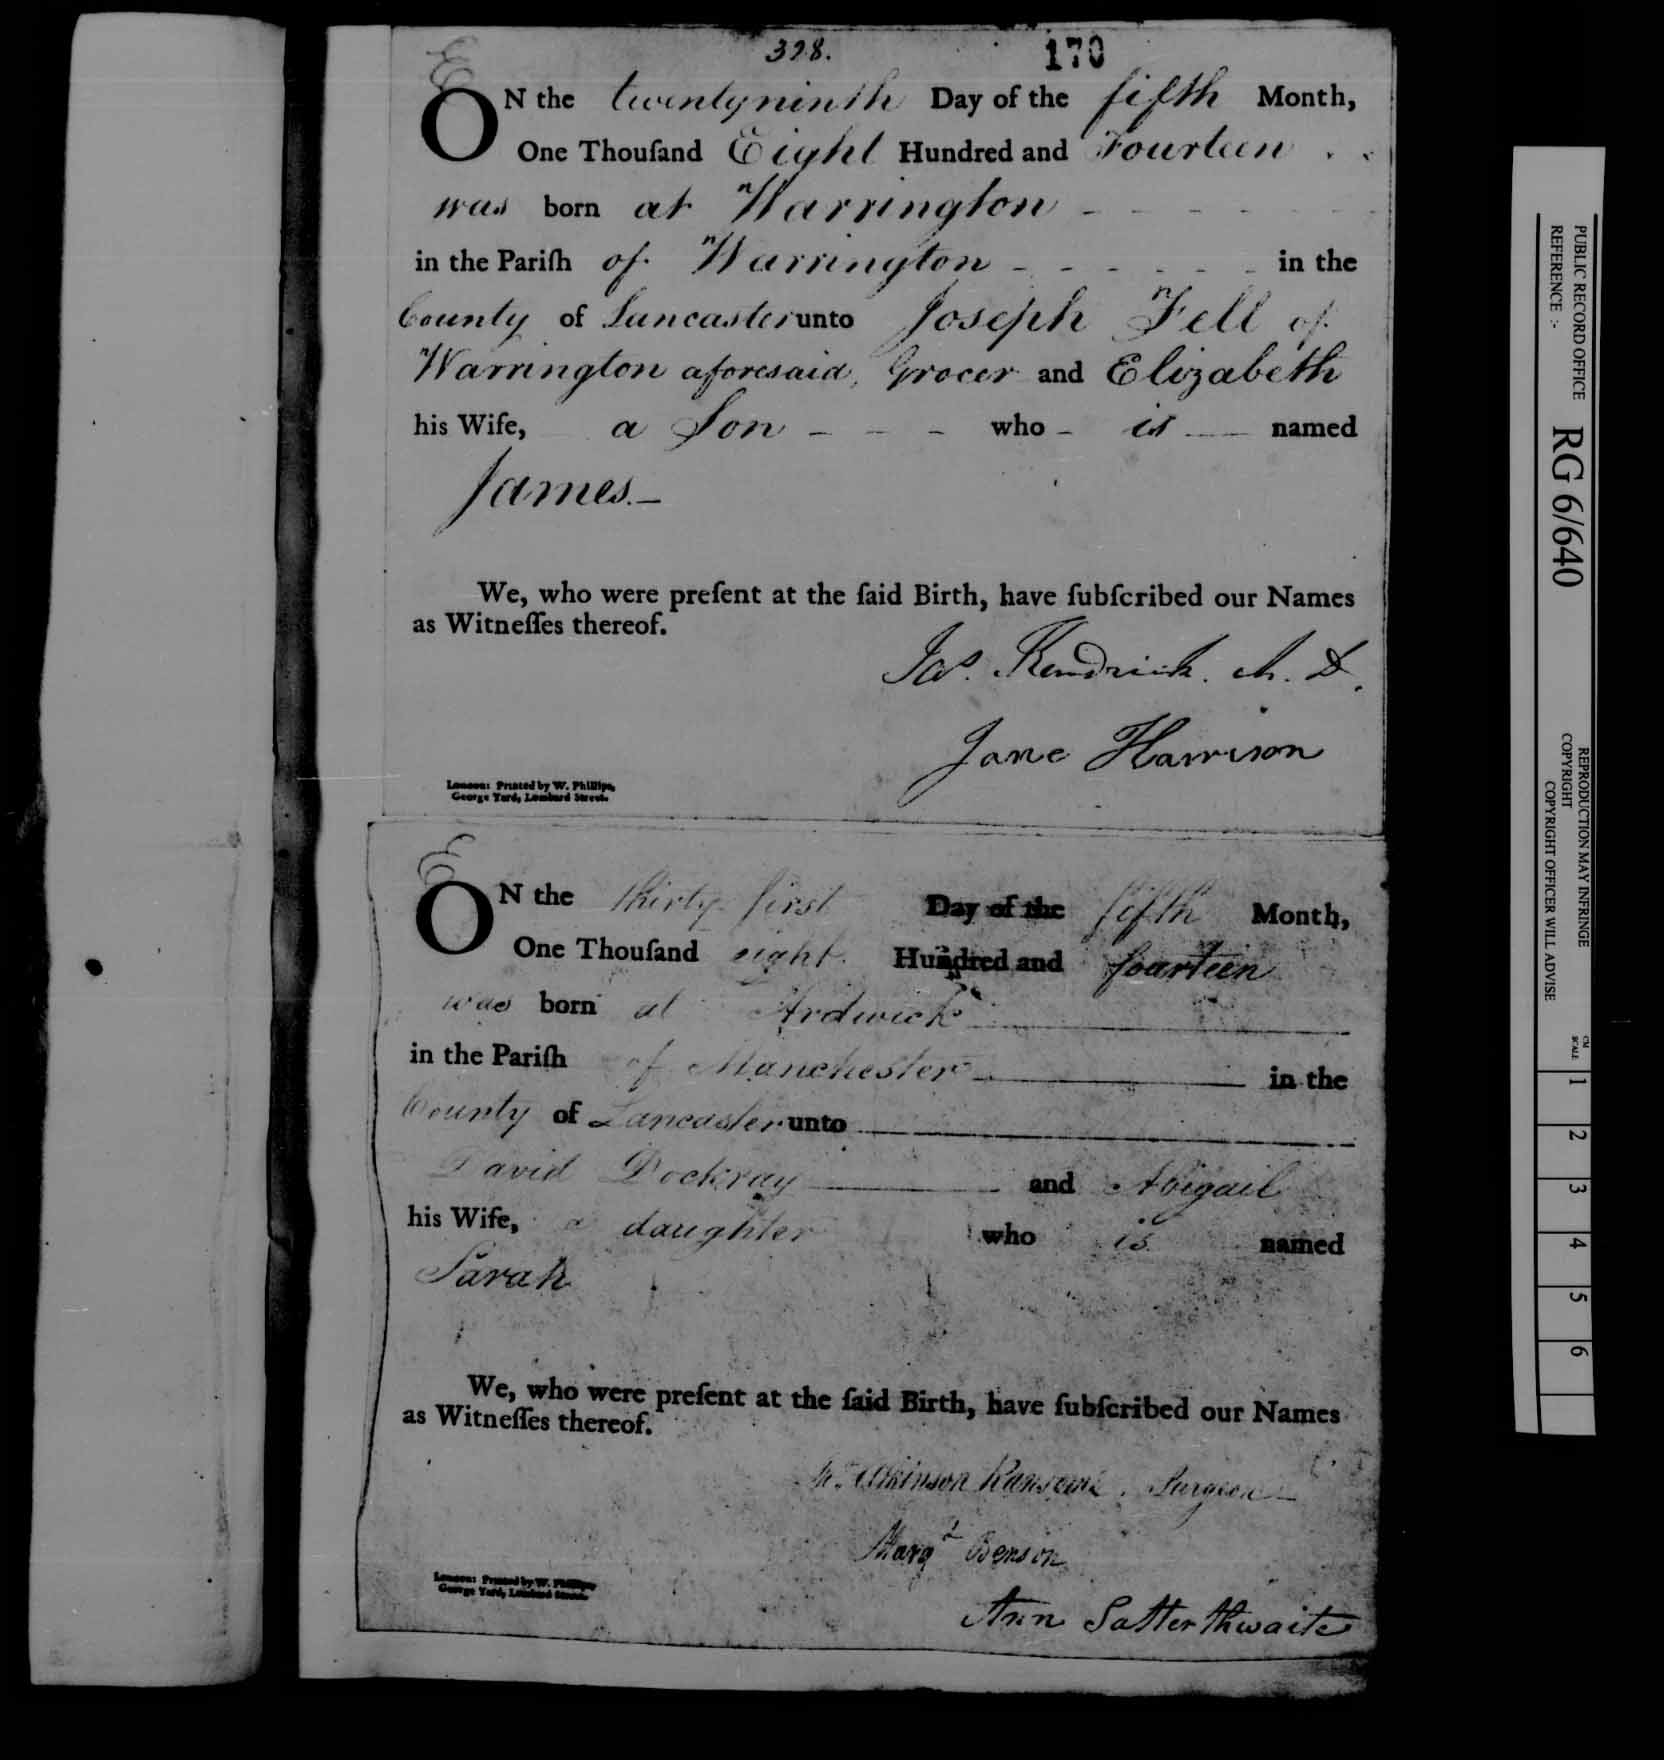 398.
170
E
ON the twentyninth Day of the fifth Month,
One Thouſand Eight Hundred and Fourteen
was born at Warrington
in the Pariſh of Warrington in the
County of Lancaster unto Joseph Fell of
Warrington aforesaid, Grocer and Elizabeth
his Wife, a Son who is named
James.
We, who were preſent at the ſaid Birth, have ſubſcribed our Names
as Witneſſes thereof.
Jas. Kendrick. M. D.
Jane Harrison
London: Printed by W. Phillips,
George Yard, Lombard Street.
E
ON the thirty first Day of the fifth Month,
One Thouſand eight Hundred and fourteen
was born at Ardwick
in the Pariſh of Manchester in the
County of Lancaster unto
David Dockray and Abigail
his Wife, a daughter who is named
Sarah
We, who were preſent at the ſaid Birth, have ſubſcribed our Names
as Witneſſes thereof.
Atkinson Ransome, Surgeon
Margt Benson
Ann Satterthwaite
London: Printed by W. Phillips,
George Yard, Lombard Street.
PUBLIC RECORD OFFICE
REFERENCE :-
RG 6/640
REPRODUCTION MAY INFRINGE
COPYRIGHT
COPYRIGHT OFFICER WILL ADVISE
CM
SCALE
1
2
3
4
5
6